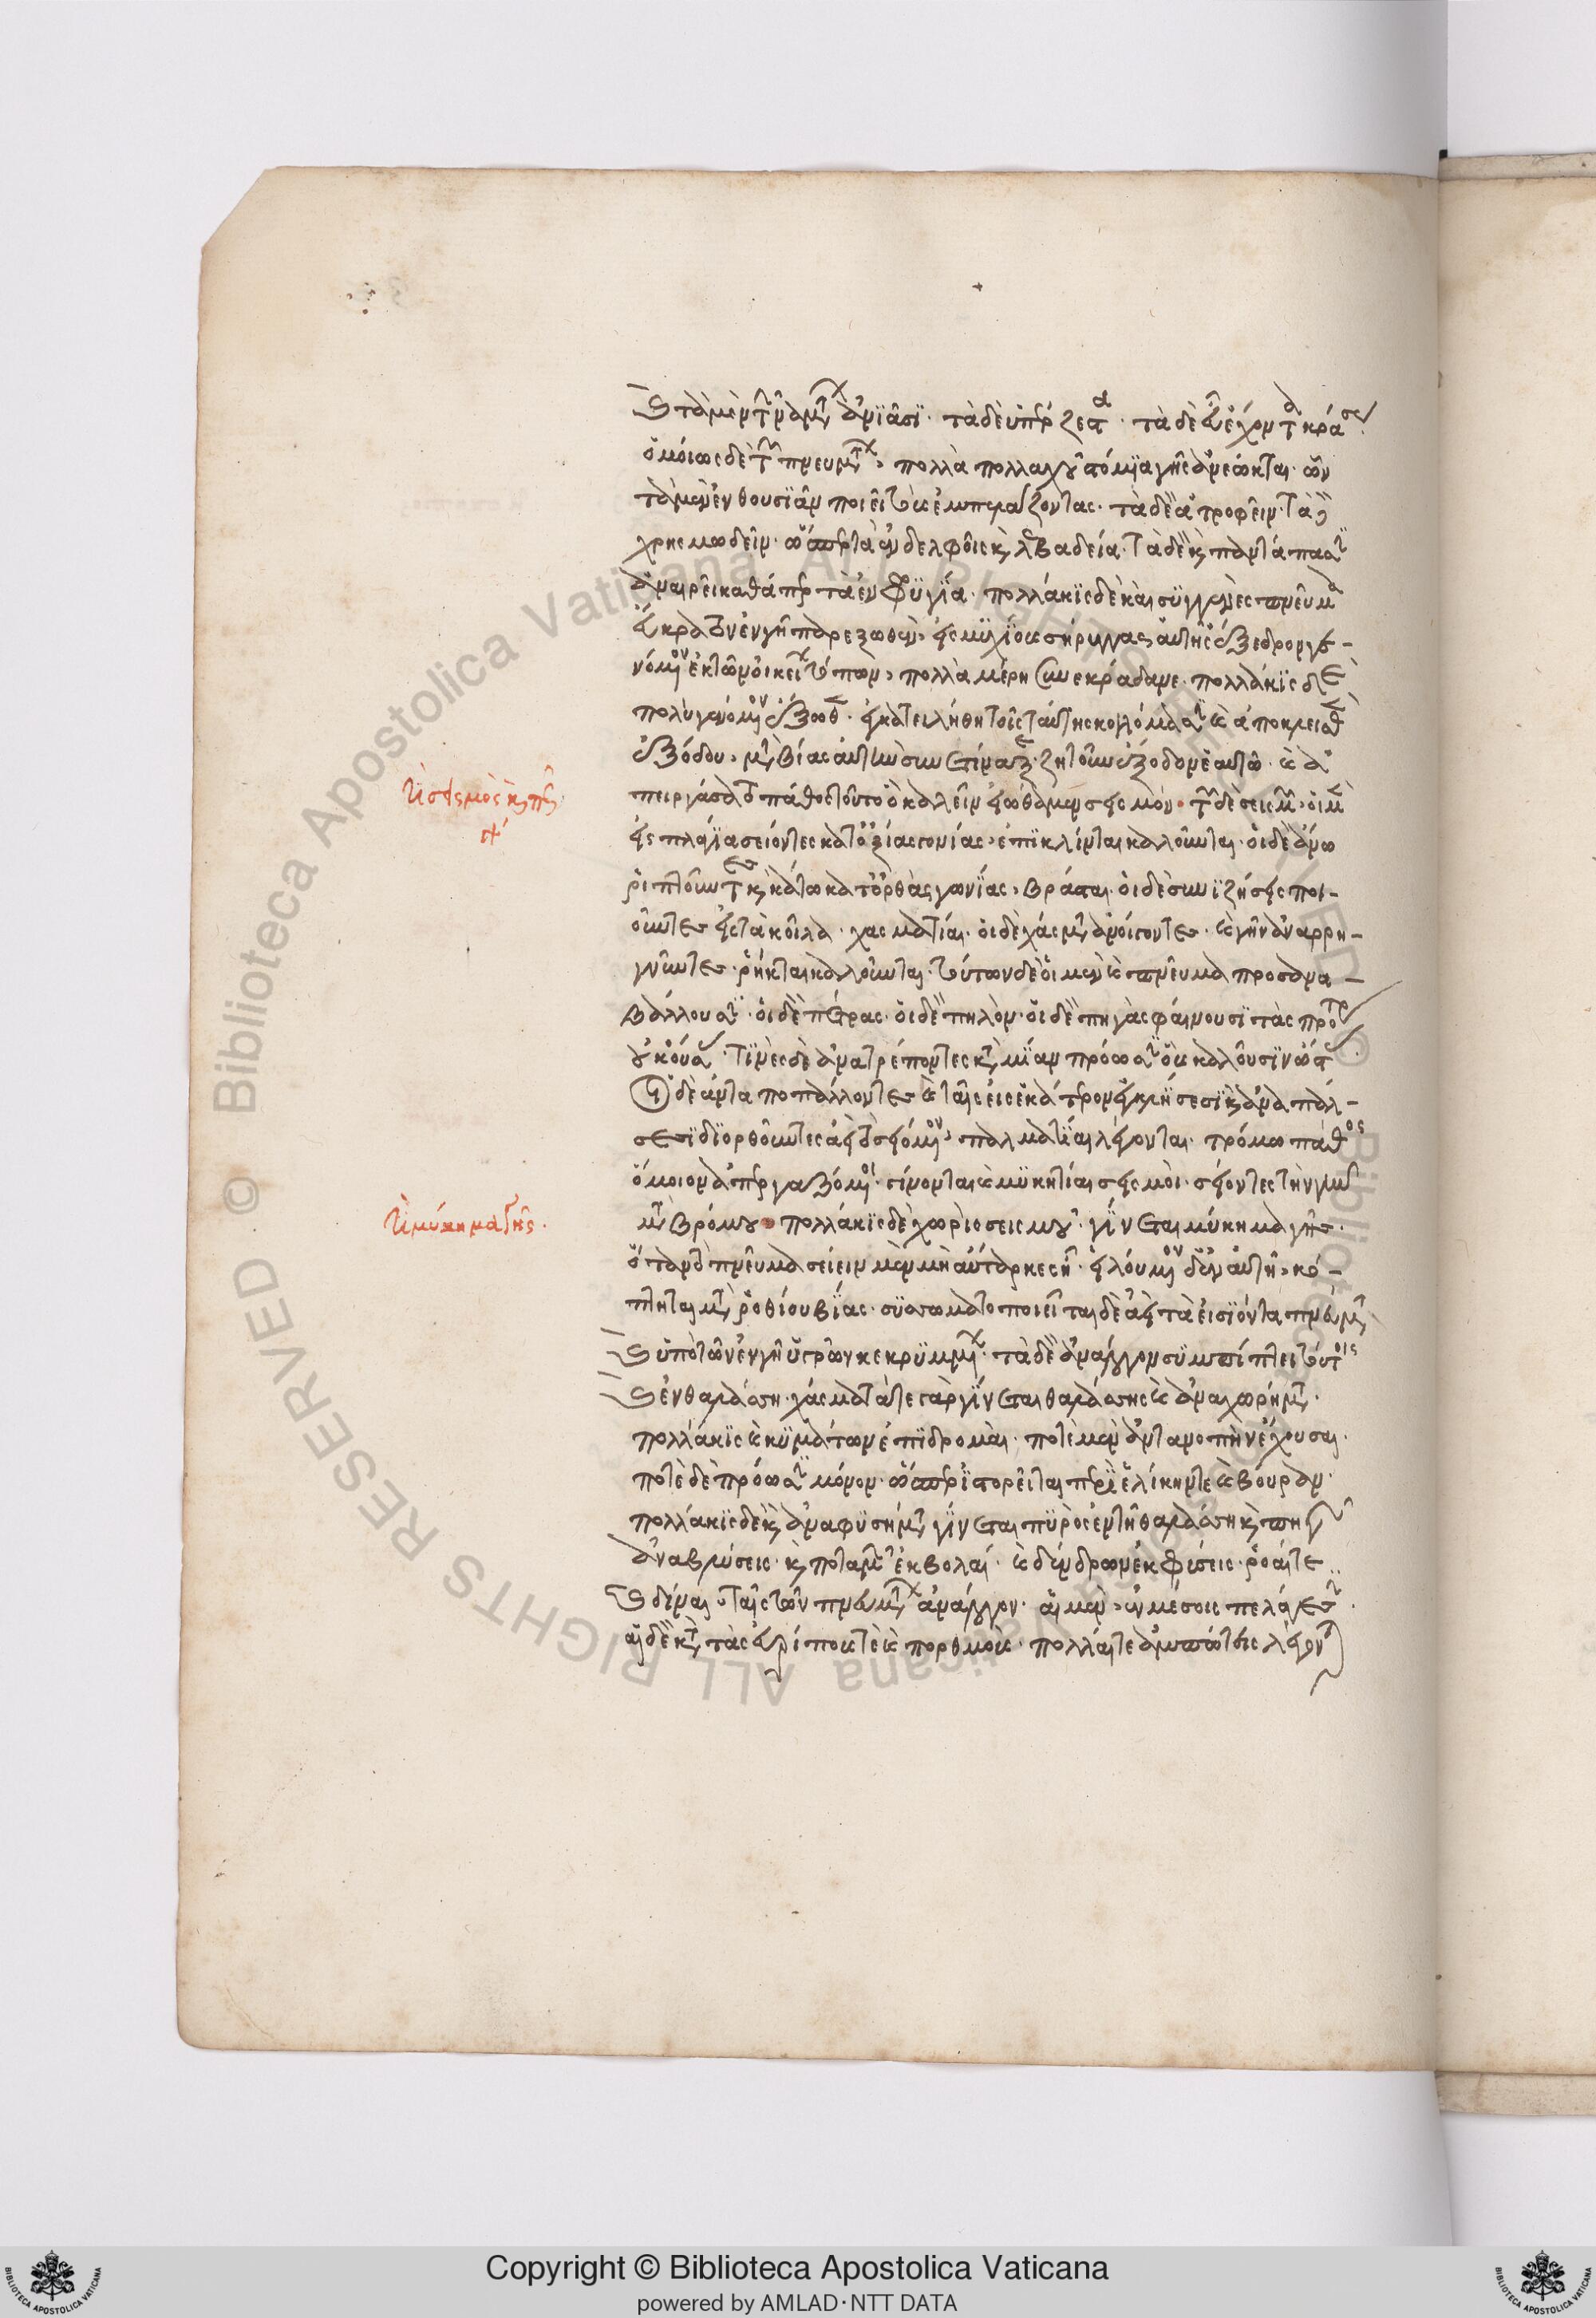 τὰ μὲν τῶν ναμάτων ἀνιᾶσι· τὰ δὲ ὑπέρζεστα· τὰ δὲ εὖ ἔχοντα κράσεως·
ὁμοίως δὲ τῶν πνευμάτων πολλὰ πολλαχοῦ στόμια γῆς ἀνέωκται· ὧν
τὰ μὲν ἐνθουσιᾶν ποιεῖ τοὺς ἐμπελάζοντας· τὰ δὲ ἀτροφεῖν· τὰ δὲ
χρησμωδεῖν· ὥσπερ τὰ ἐν δελφοῖς καὶ λεβαδεία· τὰ δὲ καὶ παντάπασιν
ἀναιρεῖ καθάπερ τὰ ἐν φρυγία· πολλάκις δὲ καὶ συγγενὲς πνεῦμα
εὔκρατον ἐν γῆ παρεξωσθὲν εἰς μυχίους σήραγγας αὐτῆς ἔξεδρον γε-
νόμενον ἐκ τῶν οἰκείων τόπων, πολλὰ μέρη συνεκράδανε· πολλάκις δὲ
πολὺ γενόμενον ἔξωθεν· ἐγκατειλήθη τοῖς ταύτης κοιλώμασι καὶ ἀποκλεισθὲν
ἐξόδου, μετὰ βίας αὐτὴν συνετίναξε· ζητοῦν ἔξοδον ἑαυτῶ· καὶ ἀ-
πειργάσατο πάθος τοῦτο ὃ καλεῖν εἰώθαμεν σεισμόν· τῶν δὲ σεισμῶν οἱ μὲν
εἰς πλάγια σείοντες κατ' ὀξείας γωνίας, ἐπικλίνται καλοῦνται· οἱ δὲ ἄνω
ῥιπτοῦντες καὶ κάτω κατ' ὀρθὰς γωνίας, βράσται· οἱ δὲ συνιζήσεις ποι-
οῦντες εἰς τὰ κοῖλα· χασματίαι· οἱ δὲ χάσματα ἀνοίγοντες· καὶ γῆν ἀναρρη-
γνῦντες· ῥῆκται καλοῦνται· τούτων δὲ οἱ μὲν καὶ πνεῦμα προσανα-
βάλλουσιν· οἱ δὲ πέτρας· οἱ δὲ πηλόν· οἱ δὲ πηγὰς φαίνουσι τὰς πρότερον
οὐκ οὔσας· τινὲς δὲ ἀνατρέποντες κατὰ μίαν πρόωσιν οὓς καλοῦσιν ὤστας
οἱ δὲ ἀνταποπάλλοντες καὶ ταῖς εἰς ἑκάτερον ἐγκλίσεσι καὶ ἀναπάλ-
σεσι διορθοῦντες ἀεὶ τὸ σειόμενον, παλματίαι λέγονται· τρόμω πάθος
ὅμοιον ἀπεργαζόμενοι· γίνονται καὶ μυκητίαι σεισμοί· σείοντες τὴν γῆν
μετὰ βρόμου· πολλάκις δὲ χωρὶς σεισμοῦ· γίνεται μύκημα γῆς·
ὅταν τὸ πνεῦμα σείειν μὲν μὴ αὔταρκες ἦ· εἰλούμενον δὲ ἐν αὐτῆ, κό-
πτηται μετὰ ῥοθίου βίας· συσσωματοποιεῖται δὲ ἀεὶ τὰ εἰσιόντα πνεύματα
ὑπὸ τῶν ἐν γῆ ὑγρῶν κεκρυμμένων· τὰ δὲ ἀνάλογον συμπίπτει τούτοις
ἐν θαλάσση· χάσματά τε γὰρ γίνεται θαλάσσης καὶ ἀναχωρήματα·
πολλάκις καὶ κυμάτων ἐπιδρομαί· ποτὲ μὲν ἀνταμοπὴν ἔχουσαι·
ποτὲ δὲ πρόωσιν μόνον· ὥσπερ ἱστορεῖται περὶ ἑλίκην τε καὶ βούραν·
πολλάκις δὲ καὶ ἀναφυσήματα γίνεται πυρὸς ἐν τῆ θαλάσση καὶ πηγῶν
ἀναβλύσεις· καὶ ποταμῶν ἐκβολαί· καὶ δένδρων ἐκφύσεις· ῥοαί τε
δῖναι, ταῖς τῶν πνευμάτων ἀνάλογον· αἱ μὲν ἐν μέσοις πελάγεσιν·
αἱ δὲ κατὰ τὰς εὐρίπους τε καὶ πορθμούς· πολλαί τε ἀμπώτεις λέγονται
τί σεισμὸς καὶ πῶς
τί μύκημα γῆς·
Copyright © Biblioteca Apostolica Vaticana
powered by AMLAD·NTT DATA